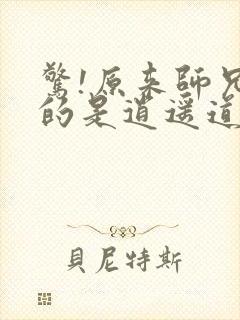 驚!原來師兄
的是逍遥道
貝尼特斯